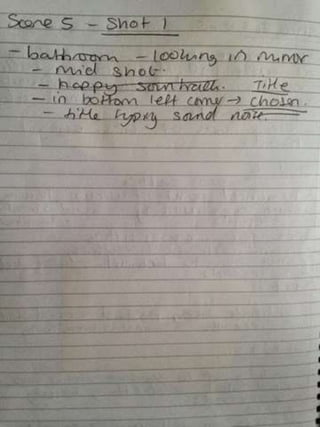 Scene 5 - Shot 1
- bathroom - looking in mirror
- mid shot.
- happy soundtrack. Title
- in bottom left corner → chosen.
- title typing sound